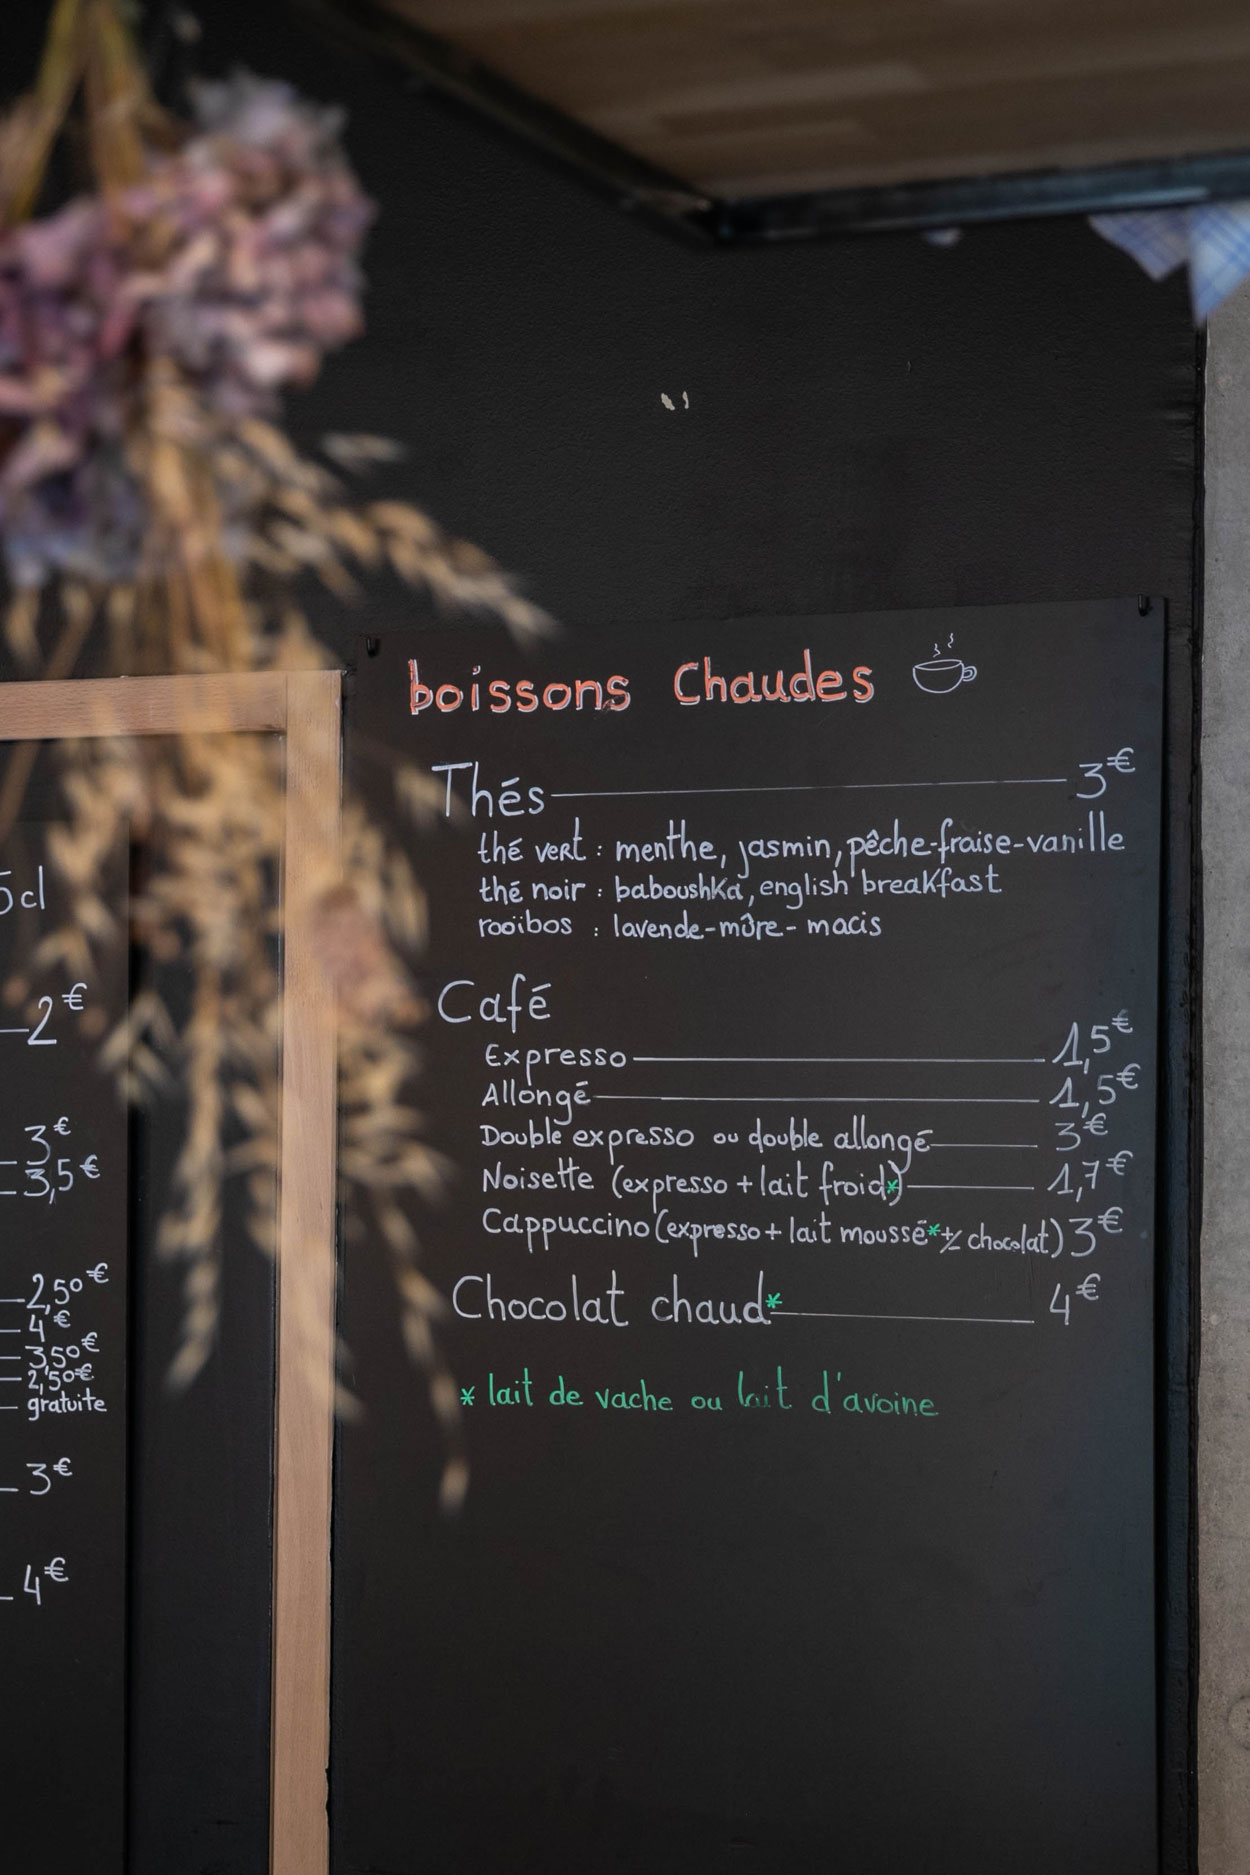 boissons Chaudes
Thés 3€
thé vert : menthe, jasmin, pêche-fraise-vanille
thé noir : baboushka, english breakfast
rooïbos : lavende-mûre-macis
Café
Expresso 1,5€
Allongé 1,5€
Double expresso ou double allongé 3€
Noisette (expresso + lait froid*) 1,7€
Cappuccino (expresso + lait moussé* +/- chocolat) 3€
Chocolat chaud* 4€
* lait de vache ou lait d'avoine
5cl
2€
3€
3,5€
2,50€
4€
3,50€
2,50€
gratuite
3€
4€